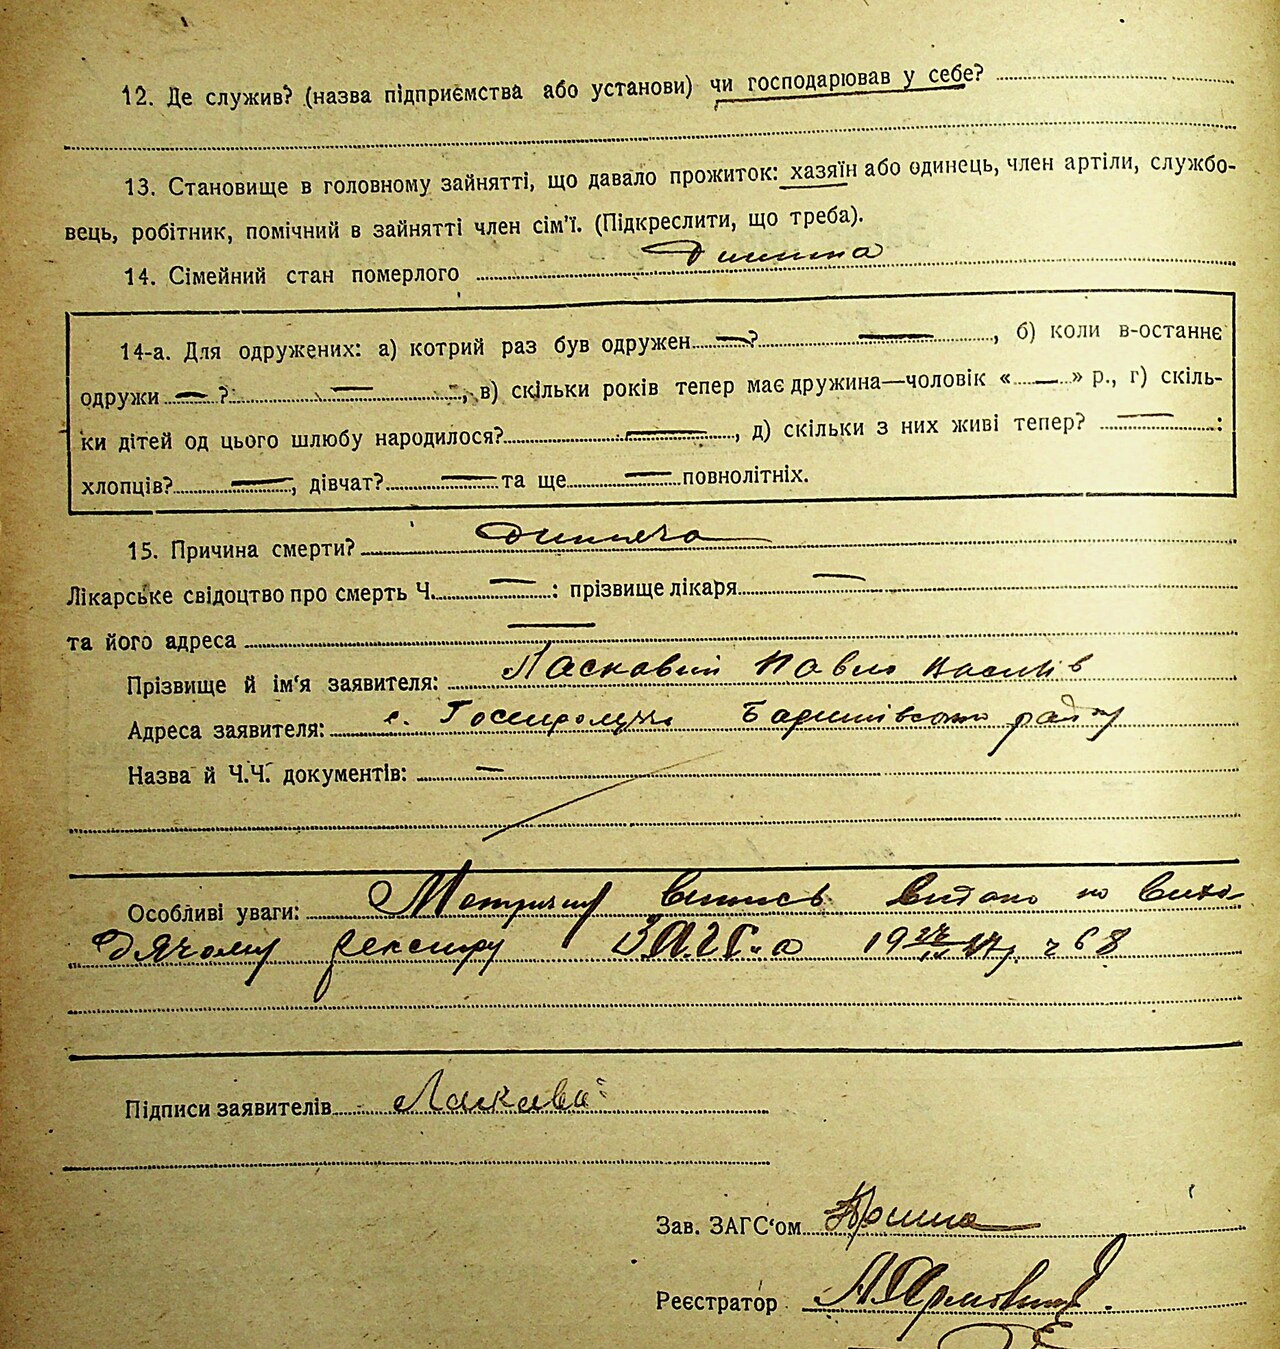 12. Де служив? (назва підприємства або установи) чи господарював у себе?
13. Становище в головному зайнятті, що давало прожиток: хазяїн або одинець, член артіли, службо-
вець, робітник, помічний в зайнятті член сім'ї. (Підкреслити, що треба).
14. Сімейний стан померлого дитина
14-а. Для одружених: а) котрий раз був одружен — ? —, б) коли в-останнє
одружи — ? —, в) скільки років тепер має дружина—чоловік « — » р., г) скіль-
ки дітей од цього шлюбу народилося? —, д) скільки з них живі тепер? — :
хлопців? —, дівчат? — та ще — повнолітніх.
15. Причина смерти? дитяча
Лікарське свідоцтво про смерть Ч. — : прізвище лікаря —
та його адреса —
Прізвище й ім'я заявителя: Ласкавий Павло Васильів
Адреса заявителя: с. Баришівського району
Назва й Ч.Ч. документів: —
Особливі уваги: Метричну випись видано по вихо-
дячому реєстру ЗАГС-а 19 ч 68
Підписи заявителів
Зав. ЗАГС'ом
Реєстратор